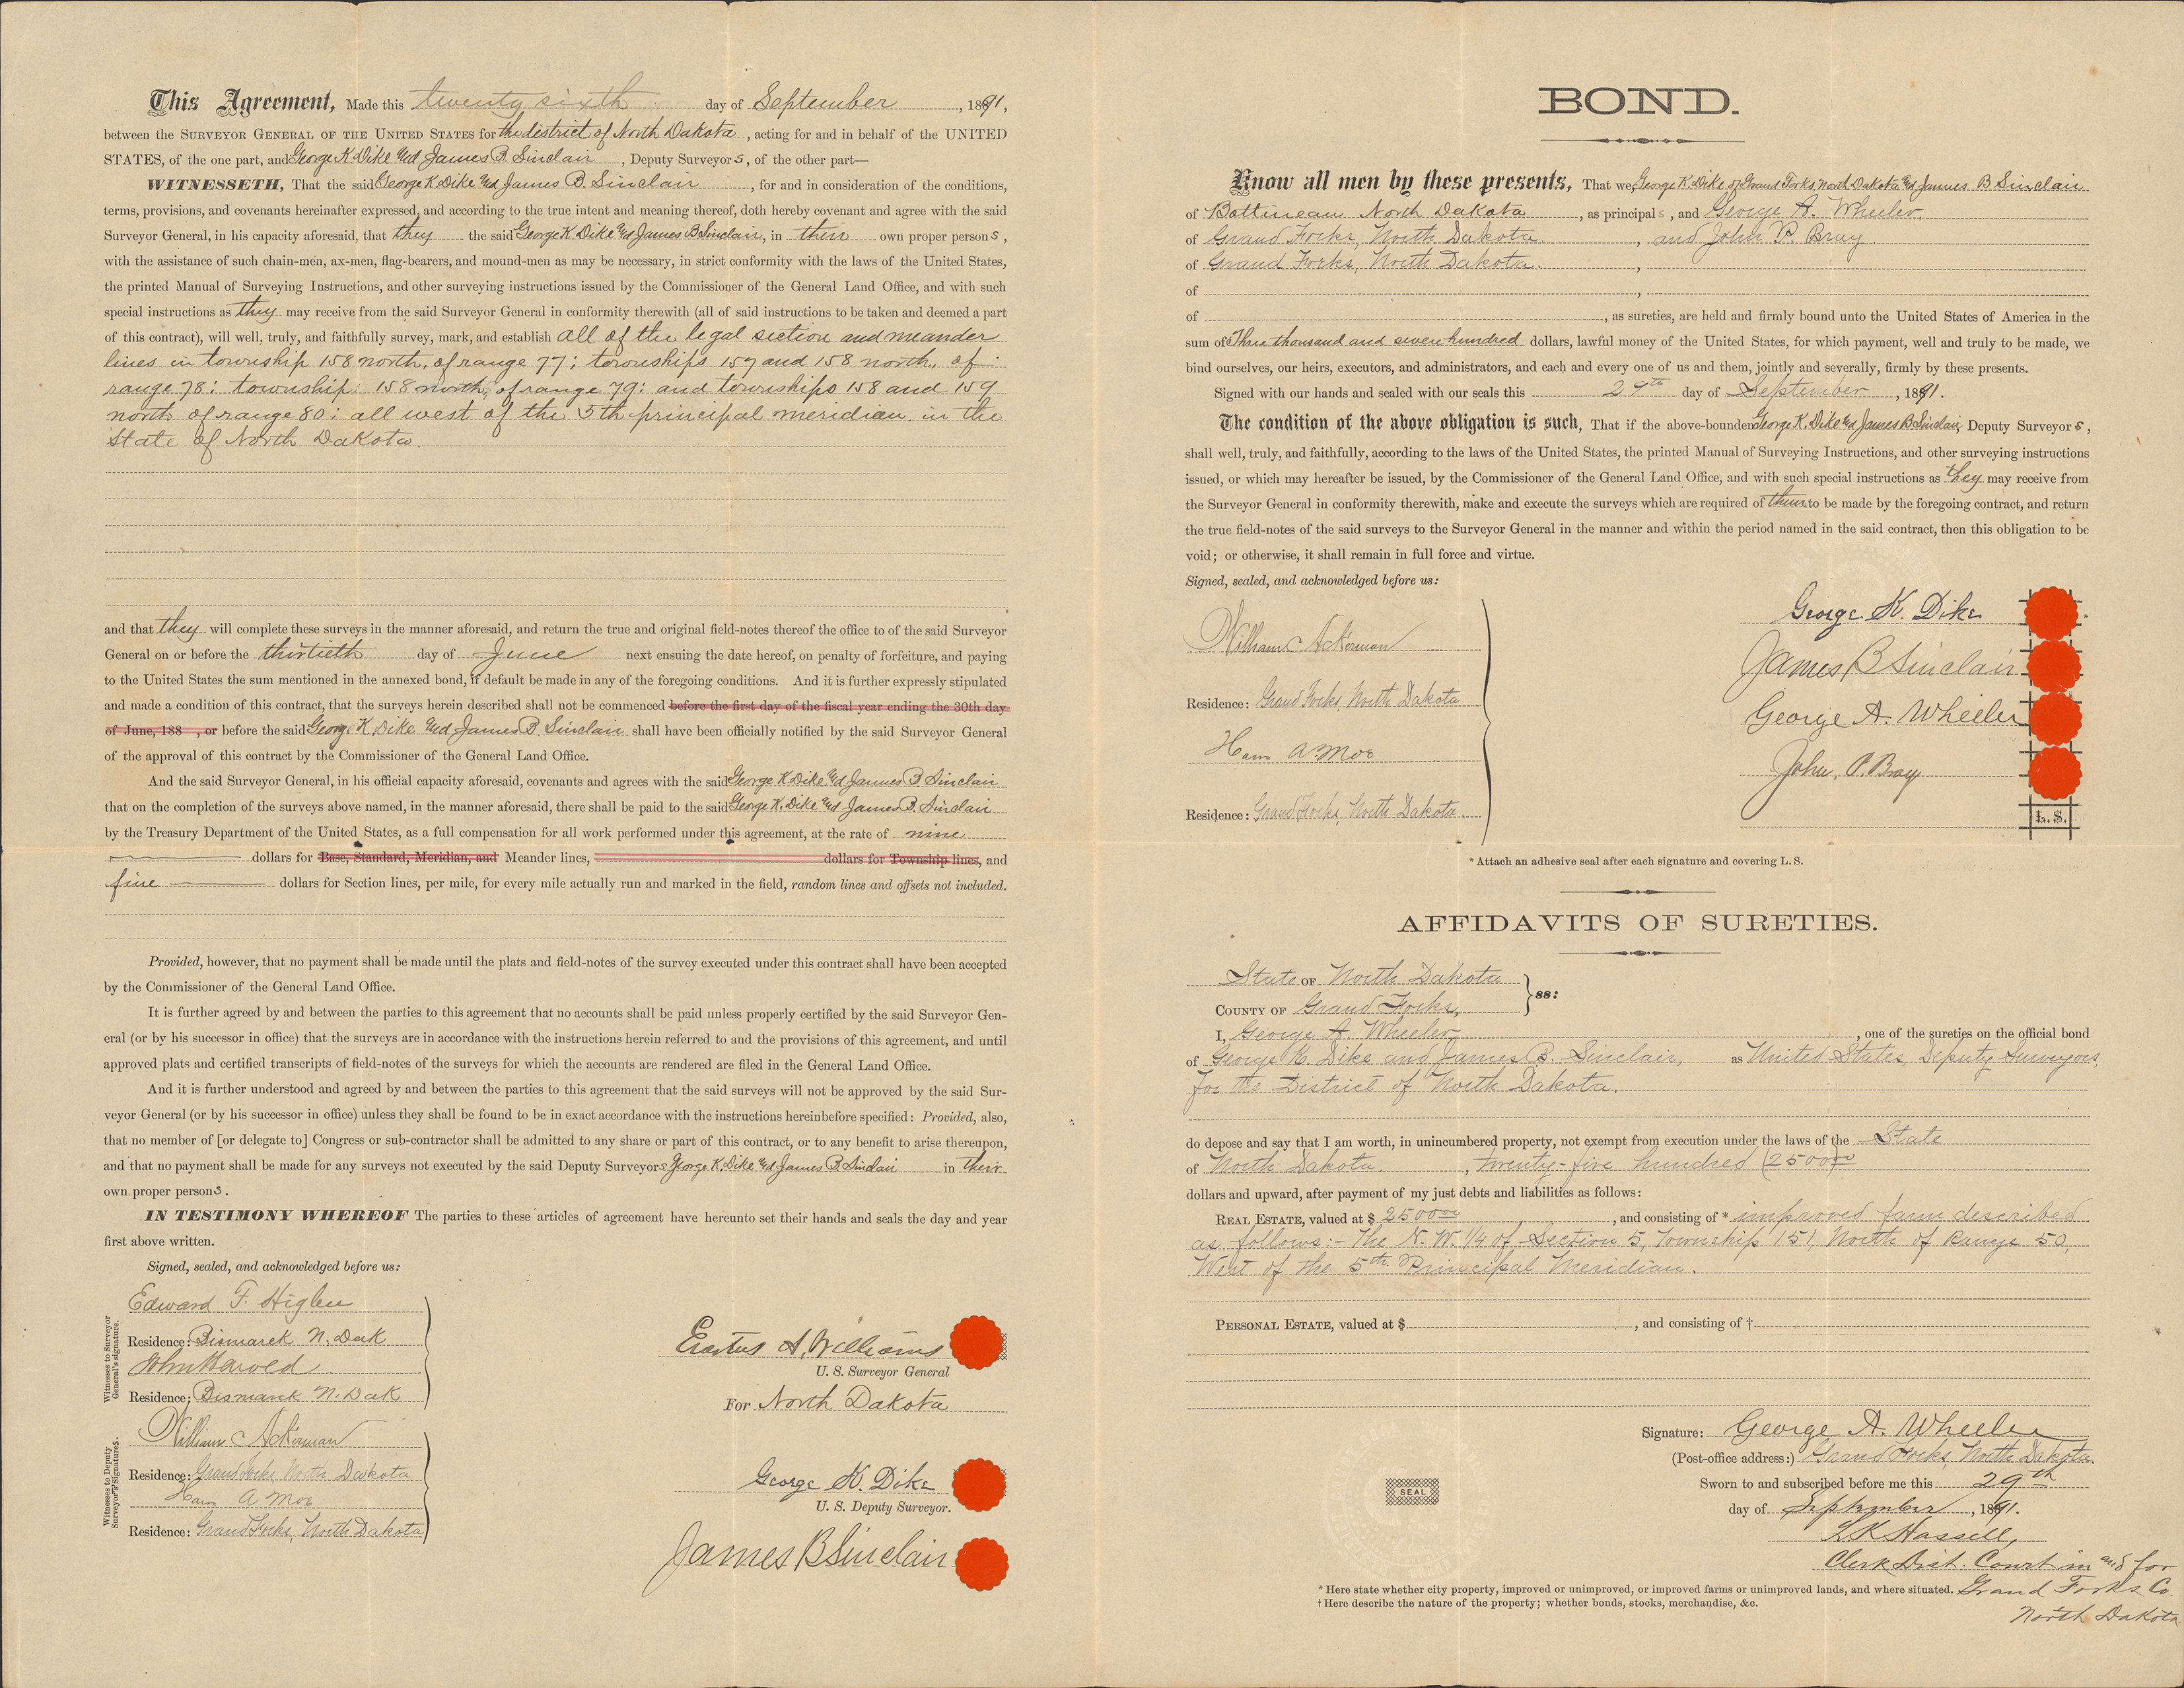 This Agreement, Made this twenty sixth day of September, 1891,
between the SURVEYOR GENERAL OF THE UNITED STATES for the district of North Dakota, acting for and in behalf of the UNITED
STATES, of the one part, and George K. Dike and James B. Sinclair, Deputy Surveyors, of the other part—
WITNESSETH, That the said George K. Dike and James B. Sinclair, for and in consideration of the conditions,
terms, provisions, and covenants hereinafter expressed, and according to the true intent and meaning thereof, doth hereby covenant and agree with the said
Surveyor General, in his capacity aforesaid, that they the said George K. Dike and James B Sinclair, in their own proper persons,
with the assistance of such chain-men, ax-men, flag-bearers, and mound-men as may be necessary, in strict conformity with the laws of the United States,
the printed Manual of Surveying Instructions, and other surveying instructions issued by the Commissioner of the General Land Office, and with such
special instructions as they may receive from the said Surveyor General in conformity therewith (all of said instructions to be taken and deemed a part
of this contract), will well, truly, and faithfully survey, mark, and establish all of the legal section and meander
lines in township 158 north, of range 77; townships 157 and 158 north, of
range 78: township 158 north, of range 79: and townships 158 and 159
north of range 80: all west of the 5th principal meridian in the
State of North Dakota.
and that they will complete these surveys in the manner aforesaid, and return the true and original field-notes thereof the office to of the said Surveyor
General on or before the thirtieth day of June next ensuing the date hereof, on penalty of forfeiture, and paying
to the United States the sum mentioned in the annexed bond, if default be made in any of the foregoing conditions. And it is further expressly stipulated
and made a condition of this contract, that the surveys herein described shall not be commenced before the first day of the fiscal year ending the 30th day
of June, 188 , or before the said George K. Dike and James B. Sinclair shall have been officially notified by the said Surveyor General
of the approval of this contract by the Commissioner of the General Land Office.
And the said Surveyor General, in his official capacity aforesaid, covenants and agrees with the said George K. Dike and James B. Sinclair
that on the completion of the surveys above named, in the manner aforesaid, there shall be paid to the said George K. Dike and James B. Sinclair
by the Treasury Department of the United States, as a full compensation for all work performed under this agreement, at the rate of nine
dollars for Base, Standard, Meridian, and Meander lines, dollars for Township lines, and
five dollars for Section lines, per mile, for every mile actually run and marked in the field, random lines and offsets not included.
Provided, however, that no payment shall be made until the plats and field-notes of the survey executed under this contract shall have been accepted
by the Commissioner of the General Land Office.
It is further agreed by and between the parties to this agreement that no accounts shall be paid unless properly certified by the said Surveyor Gen-
eral (or by his successor in office) that the surveys are in accordance with the instructions herein referred to and the provisions of this agreement, and until
approved plats and certified transcripts of field-notes of the surveys for which the accounts are rendered are filed in the General Land Office.
And it is further understood and agreed by and between the parties to this agreement that the said surveys will not be approved by the said Sur-
veyor General (or by his successor in office) unless they shall be found to be in exact accordance with the instructions hereinbefore specified: Provided, also,
that no member of [or delegate to] Congress or sub-contractor shall be admitted to any share or part of this contract, or to any benefit to arise thereupon,
and that no payment shall be made for any surveys not executed by the said Deputy Surveyors George K. Dike and James B. Sinclair in their
own proper persons.
IN TESTIMONY WHEREOF The parties to these articles of agreement have hereunto set their hands and seals the day and year
first above written.
Signed, sealed, and acknowledged before us:
Witnesses to Surveyor General's signature.
Edward F. Higbee
Residence: Bismarck N. Dak
John Harold
Residence: Bismarck N. Dak
Witnesses to Deputy Surveyor's Signatures.
William Ackerman
Residence: Grand Forks, North Dakota
Hans A Moe
Residence: Grand Forks, North Dakota
Erastus A. Williams
U. S. Surveyor General
For North Dakota
George K. Dike
U. S. Deputy Surveyor.
James B Sinclair
BOND.
Know all men by these presents, That we, George K. Dike of Grand Forks, North Dakota and James B Sinclair
of Bottineau North Dakota, as principals, and George A. Wheeler
of Grand Forks, North Dakota, and John P. Bray
of Grand Forks, North Dakota.,
of ,
of , as sureties, are held and firmly bound unto the United States of America in the
sum of Three thousand and seven hundred dollars, lawful money of the United States, for which payment, well and truly to be made, we
bind ourselves, our heirs, executors, and administrators, and each and every one of us and them, jointly and severally, firmly by these presents.
Signed with our hands and sealed with our seals this 29th day of September, 1891.
The condition of the above obligation is such, That if the above-bounden George K. Dike and James B. Sinclair, Deputy Surveyors,
shall well, truly, and faithfully, according to the laws of the United States, the printed Manual of Surveying Instructions, and other surveying instructions
issued, or which may hereafter be issued, by the Commissioner of the General Land Office, and with such special instructions as they may receive from
the Surveyor General in conformity therewith, make and execute the surveys which are required of them to be made by the foregoing contract, and return
the true field-notes of the said surveys to the Surveyor General in the manner and within the period named in the said contract, then this obligation to be
void; or otherwise, it shall remain in full force and virtue.
Signed, sealed, and acknowledged before us:
William Ackerman
Residence: Grand Forks, North Dakota
Hans A Moe
Residence: Grand Forks, North Dakota
George K. Dike
James B Sinclair
George A. Wheeler
John. P. Bray
L. S.
* Attach an adhesive seal after each signature and covering L. S.
AFFIDAVITS OF SURETIES.
State OF North Dakota
COUNTY OF Grand Forks,
ss:
I, George A. Wheeler, one of the sureties on the official bond
of George K. Dike and James B. Sinclair, as United States Deputy Surveyors,
for the District of North Dakota.
do depose and say that I am worth, in unincumbered property, not exempt from execution under the laws of the State
of North Dakota, twenty-five hundred (2500 00)
dollars and upward, after payment of my just debts and liabilities as follows:
REAL ESTATE, valued at $ 2500 00, and consisting of * improved farm described
as follows:- The N. W. 1/4 of Section 5, Township 151, North of Range 50,
West of the 5th Principal Meridian.
PERSONAL ESTATE, valued at $ , and consisting of †
Signature: George A. Wheeler
(Post-office address:) Grand Forks, North Dakota.
Sworn to and subscribed before me this 29th
day of September, 1891.
SEAL
L K Hassell,
Clerk Dist. Court in and for
Grand Forks Co.
North Dakota
* Here state whether city property, improved or unimproved, or improved farms or unimproved lands, and where situated.
† Here describe the nature of the property; whether bonds, stocks, merchandise, &c.